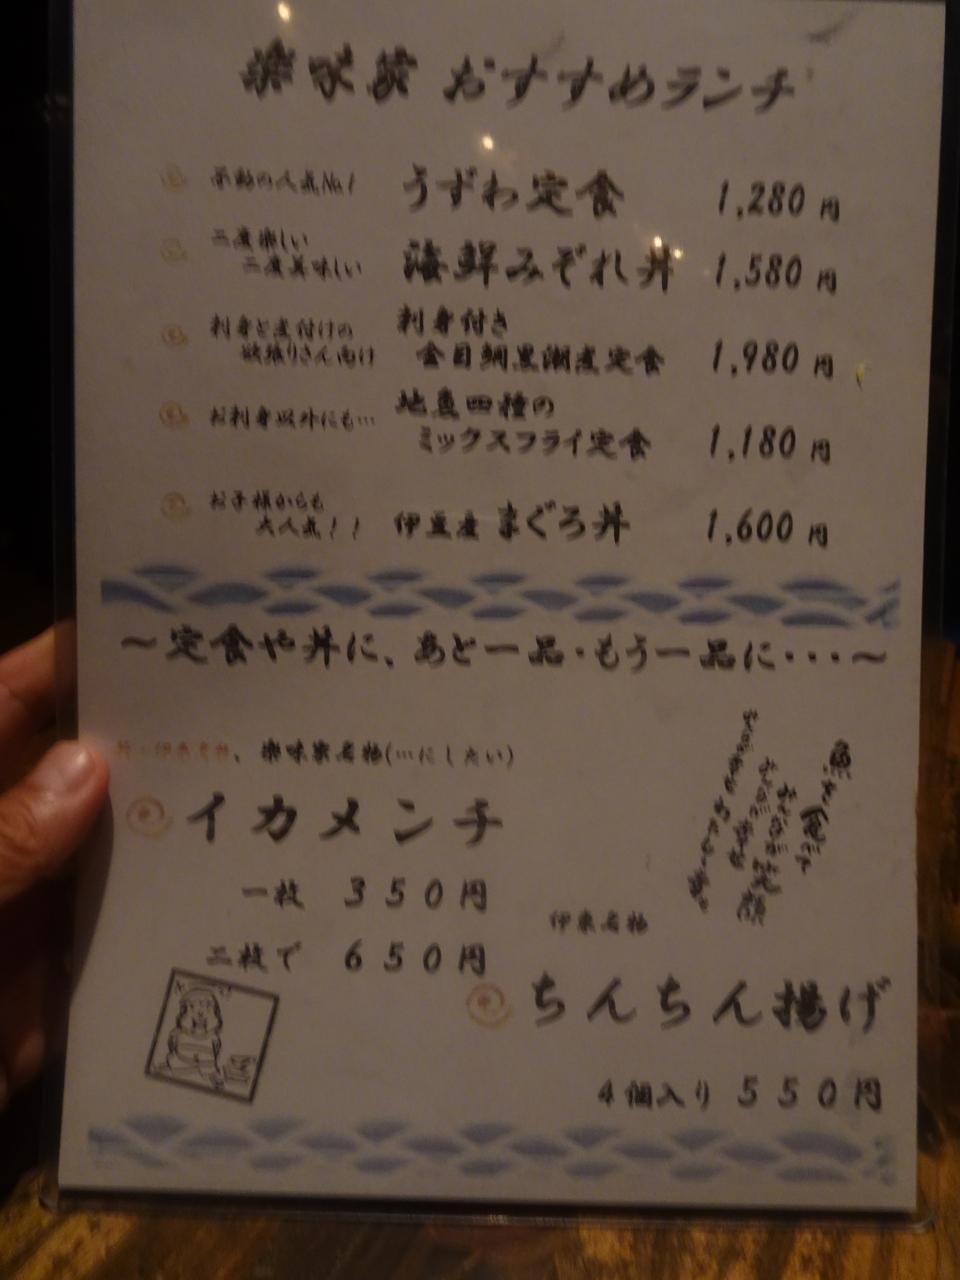 楽味家 おすすめランチ
不動の人気No.1 うずわ定食 1,280円
二度楽しい
二度美味しい 海鮮みぞれ丼 1,580円
刺身と煮付けの 刺身付き
欲張りさん向け 金目鯛黒潮煮定食 1,980円
お刺身以外にも… 地魚四種の
ミックスフライ定食 1,180円
お子様からも
大人気!! 伊豆産 まぐろ丼 1,600円
～定食や丼に、あと一品・もう一品に・・・～
伊東名物、楽味家名物(…にしたい)
イカメンチ
一枚 350円
二枚で 650円
伊東名物
ちんちん揚げ
4個入り 550円